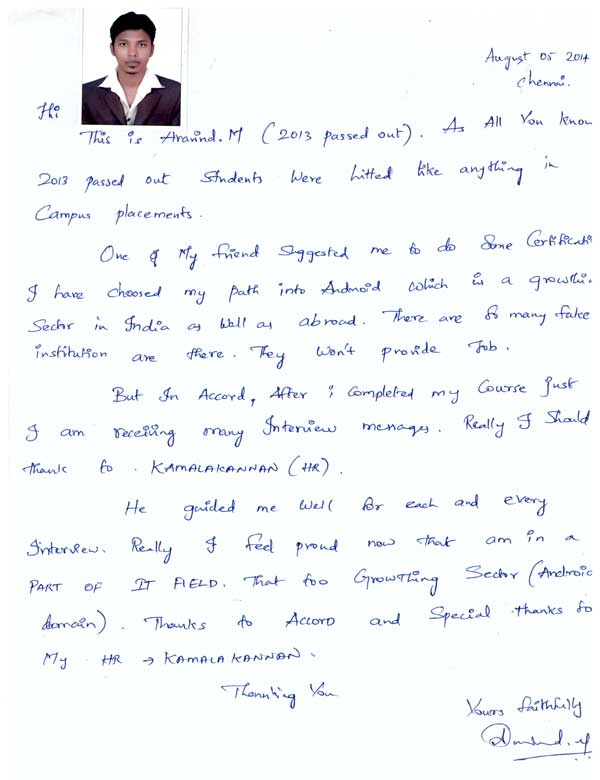 August 05 2014
Chennai.
Hi
This is Aravind.M (2013 passed out). As All You know
2013 passed out Students Were hitted like anything in
Campus placements.
One of My friend Suggested me to do Some Certificati
I have choosed my path into Android which is a growthin
Sector in India as well as abroad. There are So many fake
institution are there. They Won't provide Job.
But In Accord, After i Completed my Course just
I am receiving many Interview messages. Really I Should
thank to. KAMALAKANNAN (HR).
He guided me Well for each and every
Interview. Really I feel proud now that am in a
PART OF IT FIELD. That too Growthing Sector (Android
domain). Thanks to Accord and Special thanks to
My HR → KAMALAKANNAN.
Thannking You
Yours faithfully